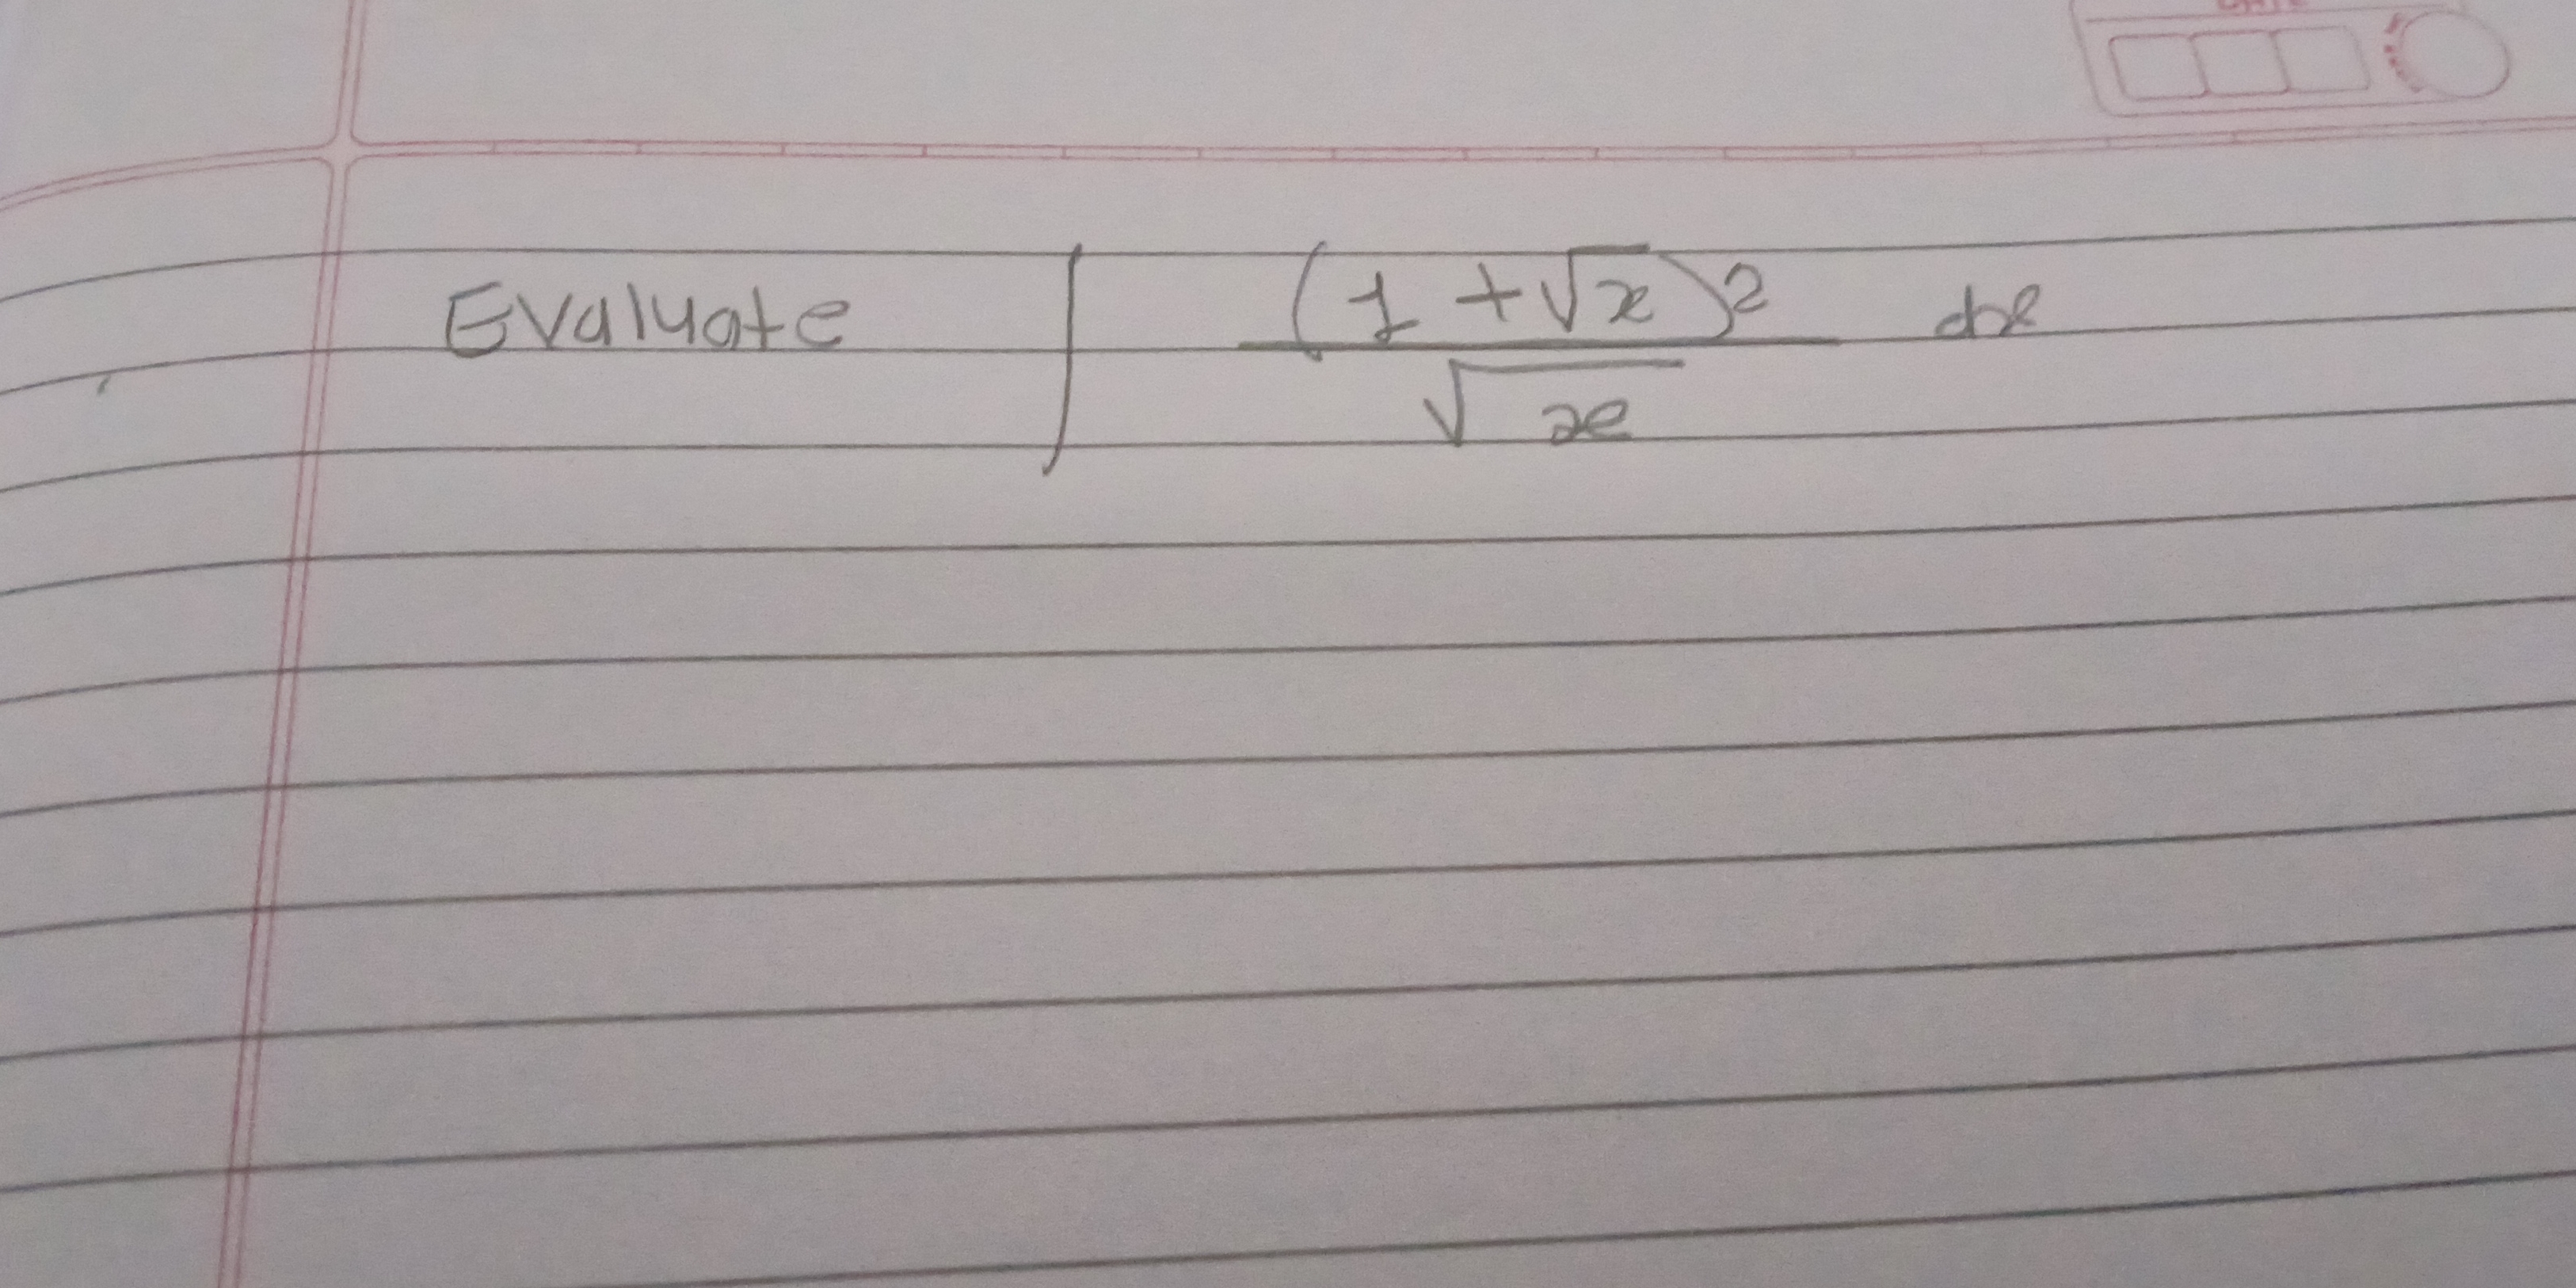 Evaluate ∫ (1 + √x)² / √x dx